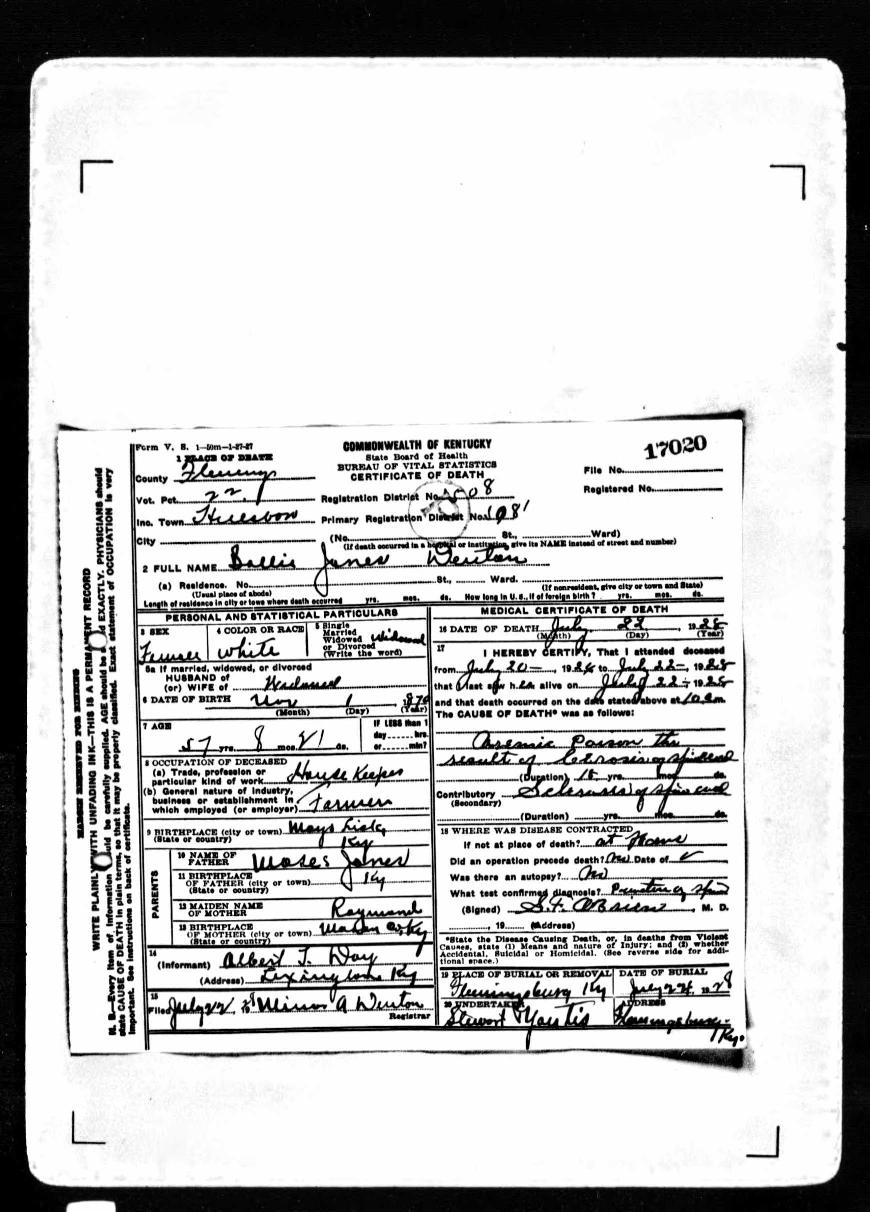 Form V. S. 1—50m—1-27-27
COMMONWEALTH OF KENTUCKY
State Board of Health
BUREAU OF VITAL STATISTICS
CERTIFICATE OF DEATH
17020
File No.
Registered No.
1 PLACE OF DEATH
County Fleming
Vot. Pct. 22
Registration District No. 508
Inc. Town Hillsboro
Primary Registration District No. 1081
City
(No. St., Ward)
(If death occurred in a hospital or institution, give its NAME instead of street and number)
2 FULL NAME Jones Denton
(a) Residence. No. St., Ward.
(Usual place of abode) (If nonresident, give city or town and State)
Length of residence in city or town where death occurred yrs. mos. ds. How long in U. S., if of foreign birth? yrs. mos. ds.
PERSONAL AND STATISTICAL PARTICULARS
3 SEX Female
4 COLOR OR RACE White
5 Single
Married
Widowed
or Divorced
(Write the word) Widowed
5a If married, widowed, or divorced
HUSBAND of
(or) WIFE of Widowed
6 DATE OF BIRTH Nov 1 1870
(Month) (Day) (Year)
7 AGE
57 yrs. 8 mos. 21 ds.
IF LESS than 1
day hrs.
or min?
8 OCCUPATION OF DECEASED
(a) Trade, profession or
particular kind of work House Keeper
(b) General nature of industry,
business or establishment in
which employed (or employer) Farmer
9 BIRTHPLACE (city or town) Mays Lick,
(State or country) Ky
PARENTS
10 NAME OF
FATHER Moses Jones
11 BIRTHPLACE
OF FATHER (city or town) Ky
(State or country)
12 MAIDEN NAME
OF MOTHER Raymond
13 BIRTHPLACE
OF MOTHER (city or town) Mason Co Ky
(State or country)
14
(Informant) Albert T. Day
(Address) Lexington Ky
15
Filed July 22 Minor A Denton
Registrar
MEDICAL CERTIFICATE OF DEATH
16 DATE OF DEATH July 22 1928
(Month) (Day) (Year)
17
I HEREBY CERTIFY, That I attended deceased
from July 20—, 19 to July 22—, 1928
that I last saw h alive on July 22—, 1928
and that death occurred on the date stated above at 10 a.m.
The CAUSE OF DEATH* was as follows:
Poison the
result of Sclerosis of spinal cord
(Duration) 15 yrs. mos. ds.
Contributory Sclerosis of spinal cord
(Secondary)
(Duration) yrs. mos. ds.
18 WHERE WAS DISEASE CONTRACTED
If not at place of death? at Home
Did an operation precede death? No Date of
Was there an autopsy? No
What test confirmed diagnosis? Puncture of spine
(Signed) S. F. O'Brien, M. D.
, 19 (Address)
*State the Disease Causing Death, or, in deaths from Violent
Causes, state (1) Means and nature of Injury; and (2) whether
Accidental, Suicidal or Homicidal. (See reverse side for addi-
tional space.)
19 PLACE OF BURIAL OR REMOVAL
Flemingsburg Ky
DATE OF BURIAL
July 24, 1928
20 UNDERTAKER
Stewart Yantis
ADDRESS
Flemingsburg—
Ky.
MARGIN RESERVED FOR BINDING
WRITE PLAINLY WITH UNFADING INK—THIS IS A PERMANENT RECORD
N. B.—Every item of information should be carefully supplied. AGE should be stated EXACTLY. PHYSICIANS should
state CAUSE OF DEATH in plain terms, so that it may be properly classified. Exact statement of OCCUPATION is very
important. See instructions on back of certificate.